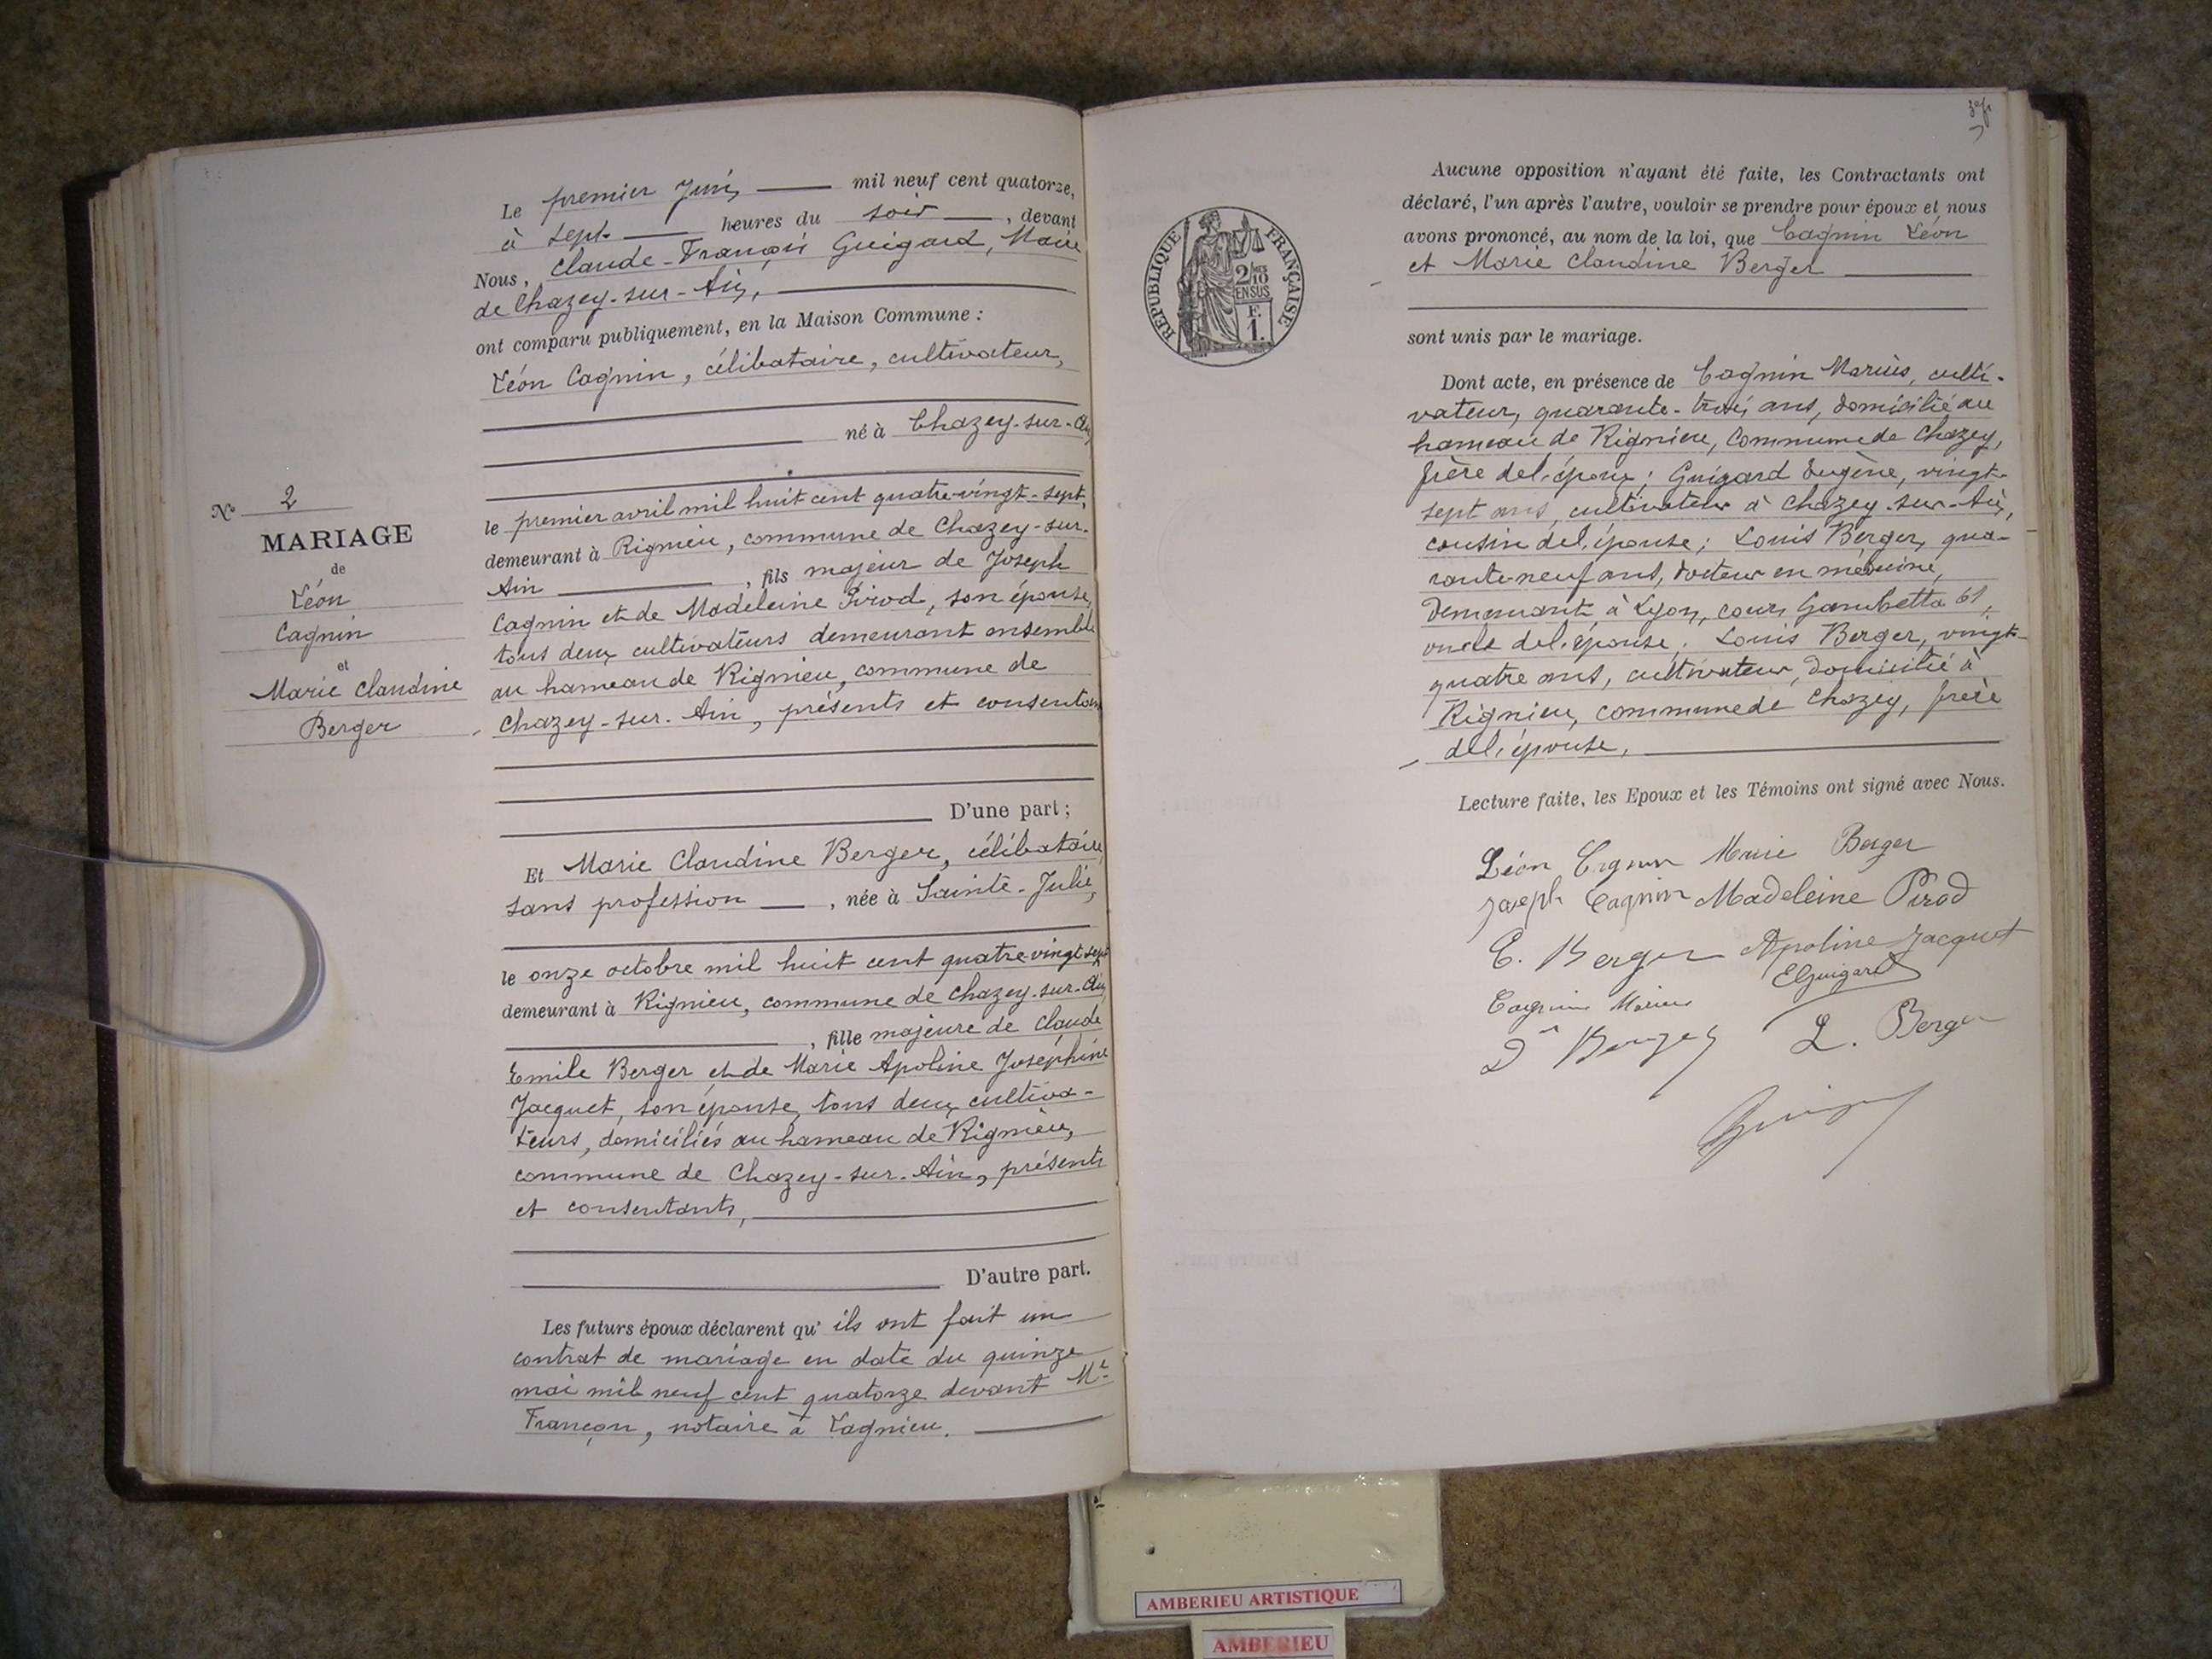 N° 2
MARIAGE
de
Léon
Cagnin
et
Marie Claudine
Berger
Le premier Juin mil neuf cent quatorze,
à sept heures du soir, devant
Nous, Claude-François Guigard, Maire
de Chazey-sur-Ain,
ont comparu publiquement, en la Maison Commune :
Léon Cagnin, célibataire, cultivateur,
né à Chazey-sur-Ain
le premier avril mil huit cent quatre-vingt-sept,
demeurant à Rignieu, commune de Chazey-sur-
Ain, fils majeur de Joseph
Cagnin et de Madeleine Pirod, son épouse,
tous deux cultivateurs demeurant ensemble
au hameau de Rignieu, commune de
Chazey-sur-Ain, présents et consentants
D'une part ;
Et Marie Claudine Berger, célibataire,
sans profession, née à Sainte-Julie,
le onze octobre mil huit cent quatre-vingt-sept
demeurant à Rignieu, commune de Chazey-sur-Ain,
, fille majeure de Claude
Emile Berger et de Marie Apoline Joséphine
Jacquet, son épouse, tous deux cultiva-
teurs, domiciliés au hameau de Rignieu,
commune de Chazey-sur-Ain, présents
et consentants,
D'autre part.
Les futurs époux déclarent qu'ils ont fait un
contrat de mariage en date du quinze
mai mil neuf cent quatorze devant Me
Françon, notaire à Lagnieu.
RÉPUBLIQUE FRANÇAISE
2/10
EN SUS
F.
1.
Aucune opposition n'ayant été faite, les Contractants ont
déclaré, l'un après l'autre, vouloir se prendre pour époux et nous
avons prononcé, au nom de la loi, que Cagnin Léon
et Marie Claudine Berger
sont unis par le mariage.
Dont acte, en présence de Cagnin Marius, culti-
vateur, quarante-trois ans, domicilié au
hameau de Rignieu, Commune de Chazey,
frère de l'époux ; Guigard Eugène, vingt-
sept ans, cultivateur à Chazey-sur-Ain,
cousin de l'épouse ; Louis Berger, qua-
rante-neuf ans, docteur en médecine,
demeurant à Lyon, cours Gambetta 61,
oncle de l'épouse ; Louis Berger, vingt-
quatre ans, cultivateur, domicilié à
Rignieu, commune de Chazey, frère
de l'épouse,
Lecture faite, les Epoux et les Témoins ont signé avec Nous.
Léon Cagnin Marie Berger
Joseph Cagnin Madeleine Pirod
E. Berger Apoline Jacquet
EGuigard
Cagnin Marius
Dr Berger L. Berger
AMBERIEU ARTISTIQUE
AMBERIEU